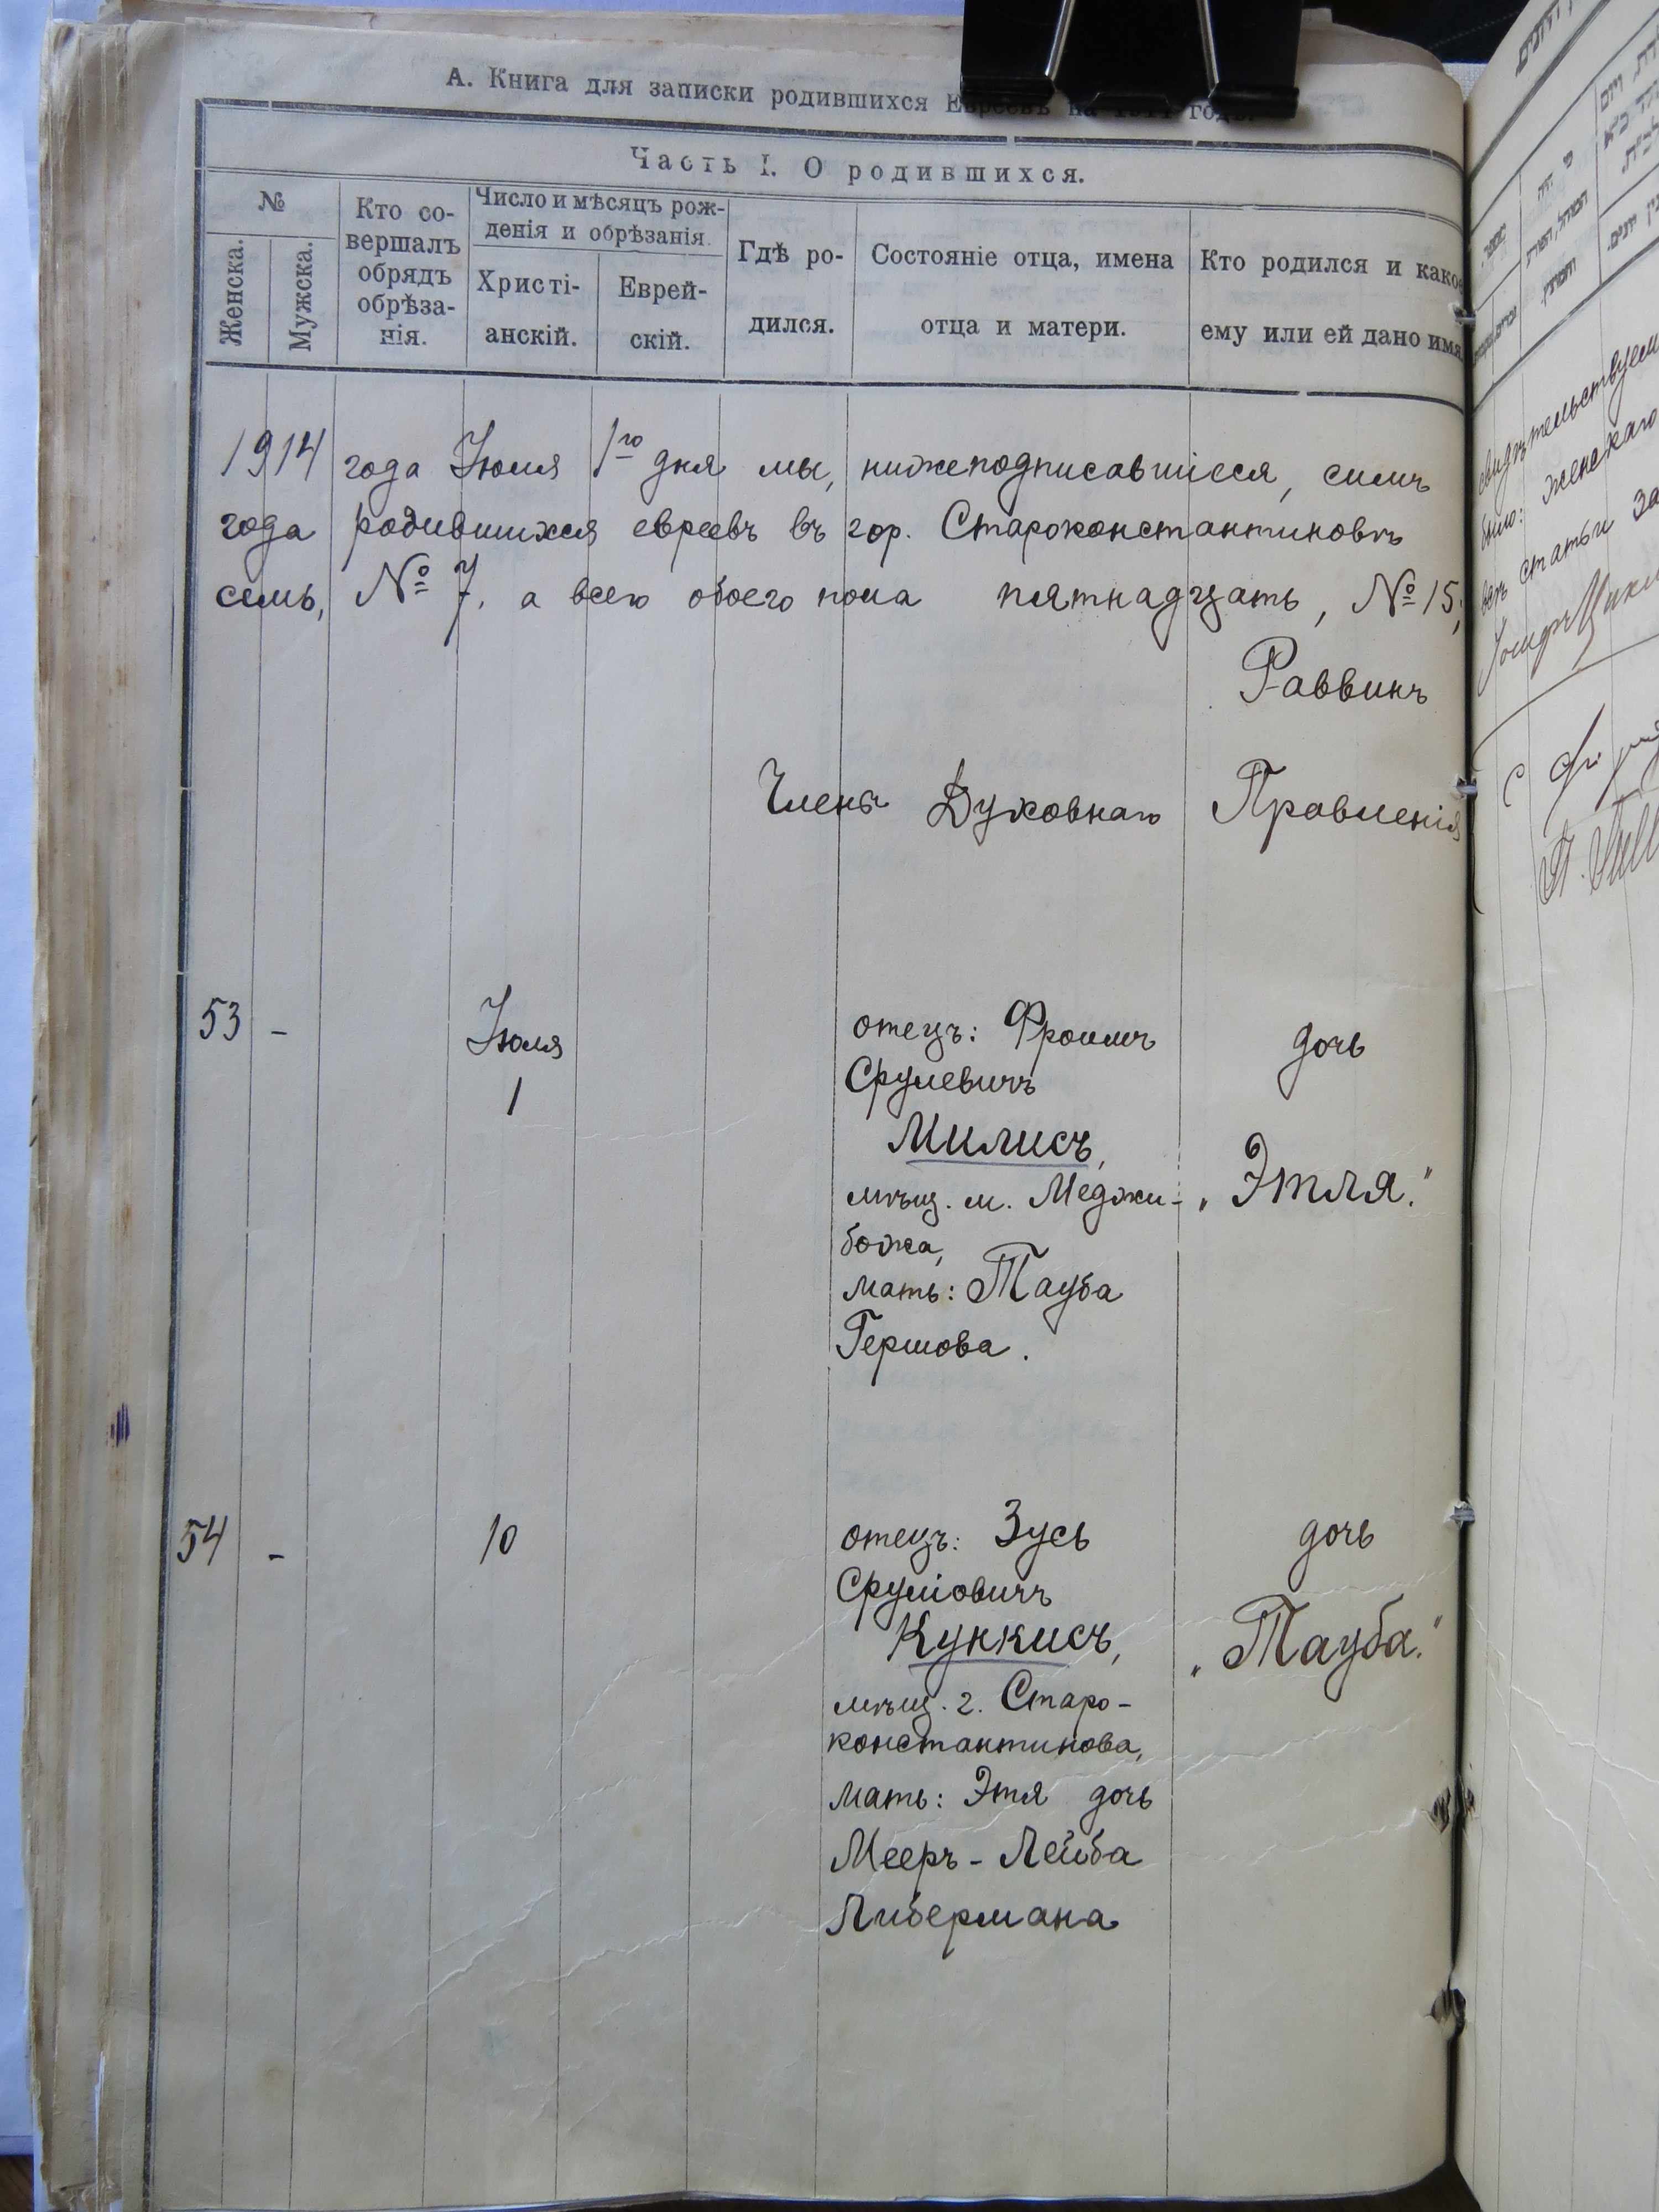 А. Книга для записки родившихся Евреевъ на 1914 годъ.
Часть I. О родившихся.
№
Женска.
Мужска.
Кто со-
вершалъ
обрядъ
обрѣза-
нія.
Число и мѣсяцъ рож-
денія и обрѣзанія.
Христі-
анскій.
Еврей-
скій.
Гдѣ ро-
дился.
Состояніе отца, имена
отца и матери.
Кто родился и какое
ему или ей дано имя
1914 года Іюля 1го дня мы, нижеподписавшіеся, симъ
года родившихся евреевъ въ гор. Староконстантиновѣ
семь, № 7, а всего обоего пола пятнадцать, № 15;
Раввинъ
Члены Духовнаго Правленія
53 -
Іюля
1
отецъ: Фроимъ
Срулевичъ
Милисъ,
мѣщ. м. Меджи-
божа,
мать: Тауба
Гершова.
дочь
„Этля."
54 -
10
отецъ: Зусь
Сруліовичъ
Куккисъ,
мѣщ. г. Старо-
константинова,
мать: Этя дочь
Мееръ-Лейба
Либермана
дочь
„Тауба."
свидѣтельствуем
было: женскаго
статьи за